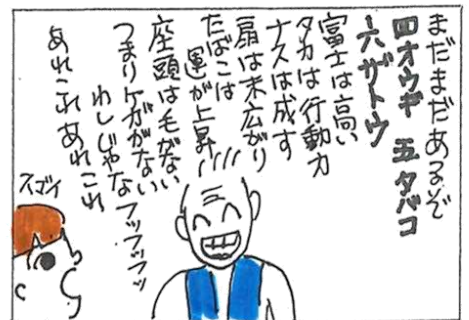 まだまだあるぞ
四オウギ 五タバコ
六ザトウ
富士は高い
タカは行動力
ナスは成す
扇は末広がり
たばこは
運が上昇
座頭は毛がない
つまりケガがない
わしじゃな フッフッフッ
あれこれあれこれ
スゴイ